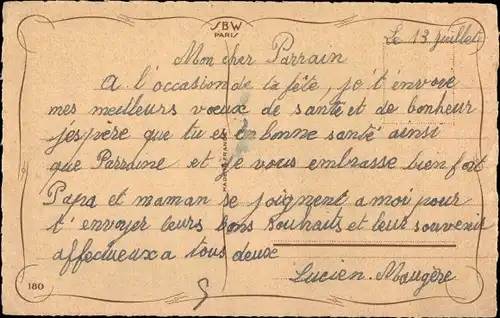 SBW
PARIS
Le 13 Juillet
Mon cher Parrain
A l'occasion de ta fête, je t'envoie
mes meilleurs vœux de santé et de bonheur
j'espère que tu es en bonne santé ainsi
que Parraine et je vous embrasse bien fort
Papa et maman se joignent a moi pour
t'envoyer leurs bons souhaits et leur souvenir
affectueux a tous deux
Lucien Maugère
180